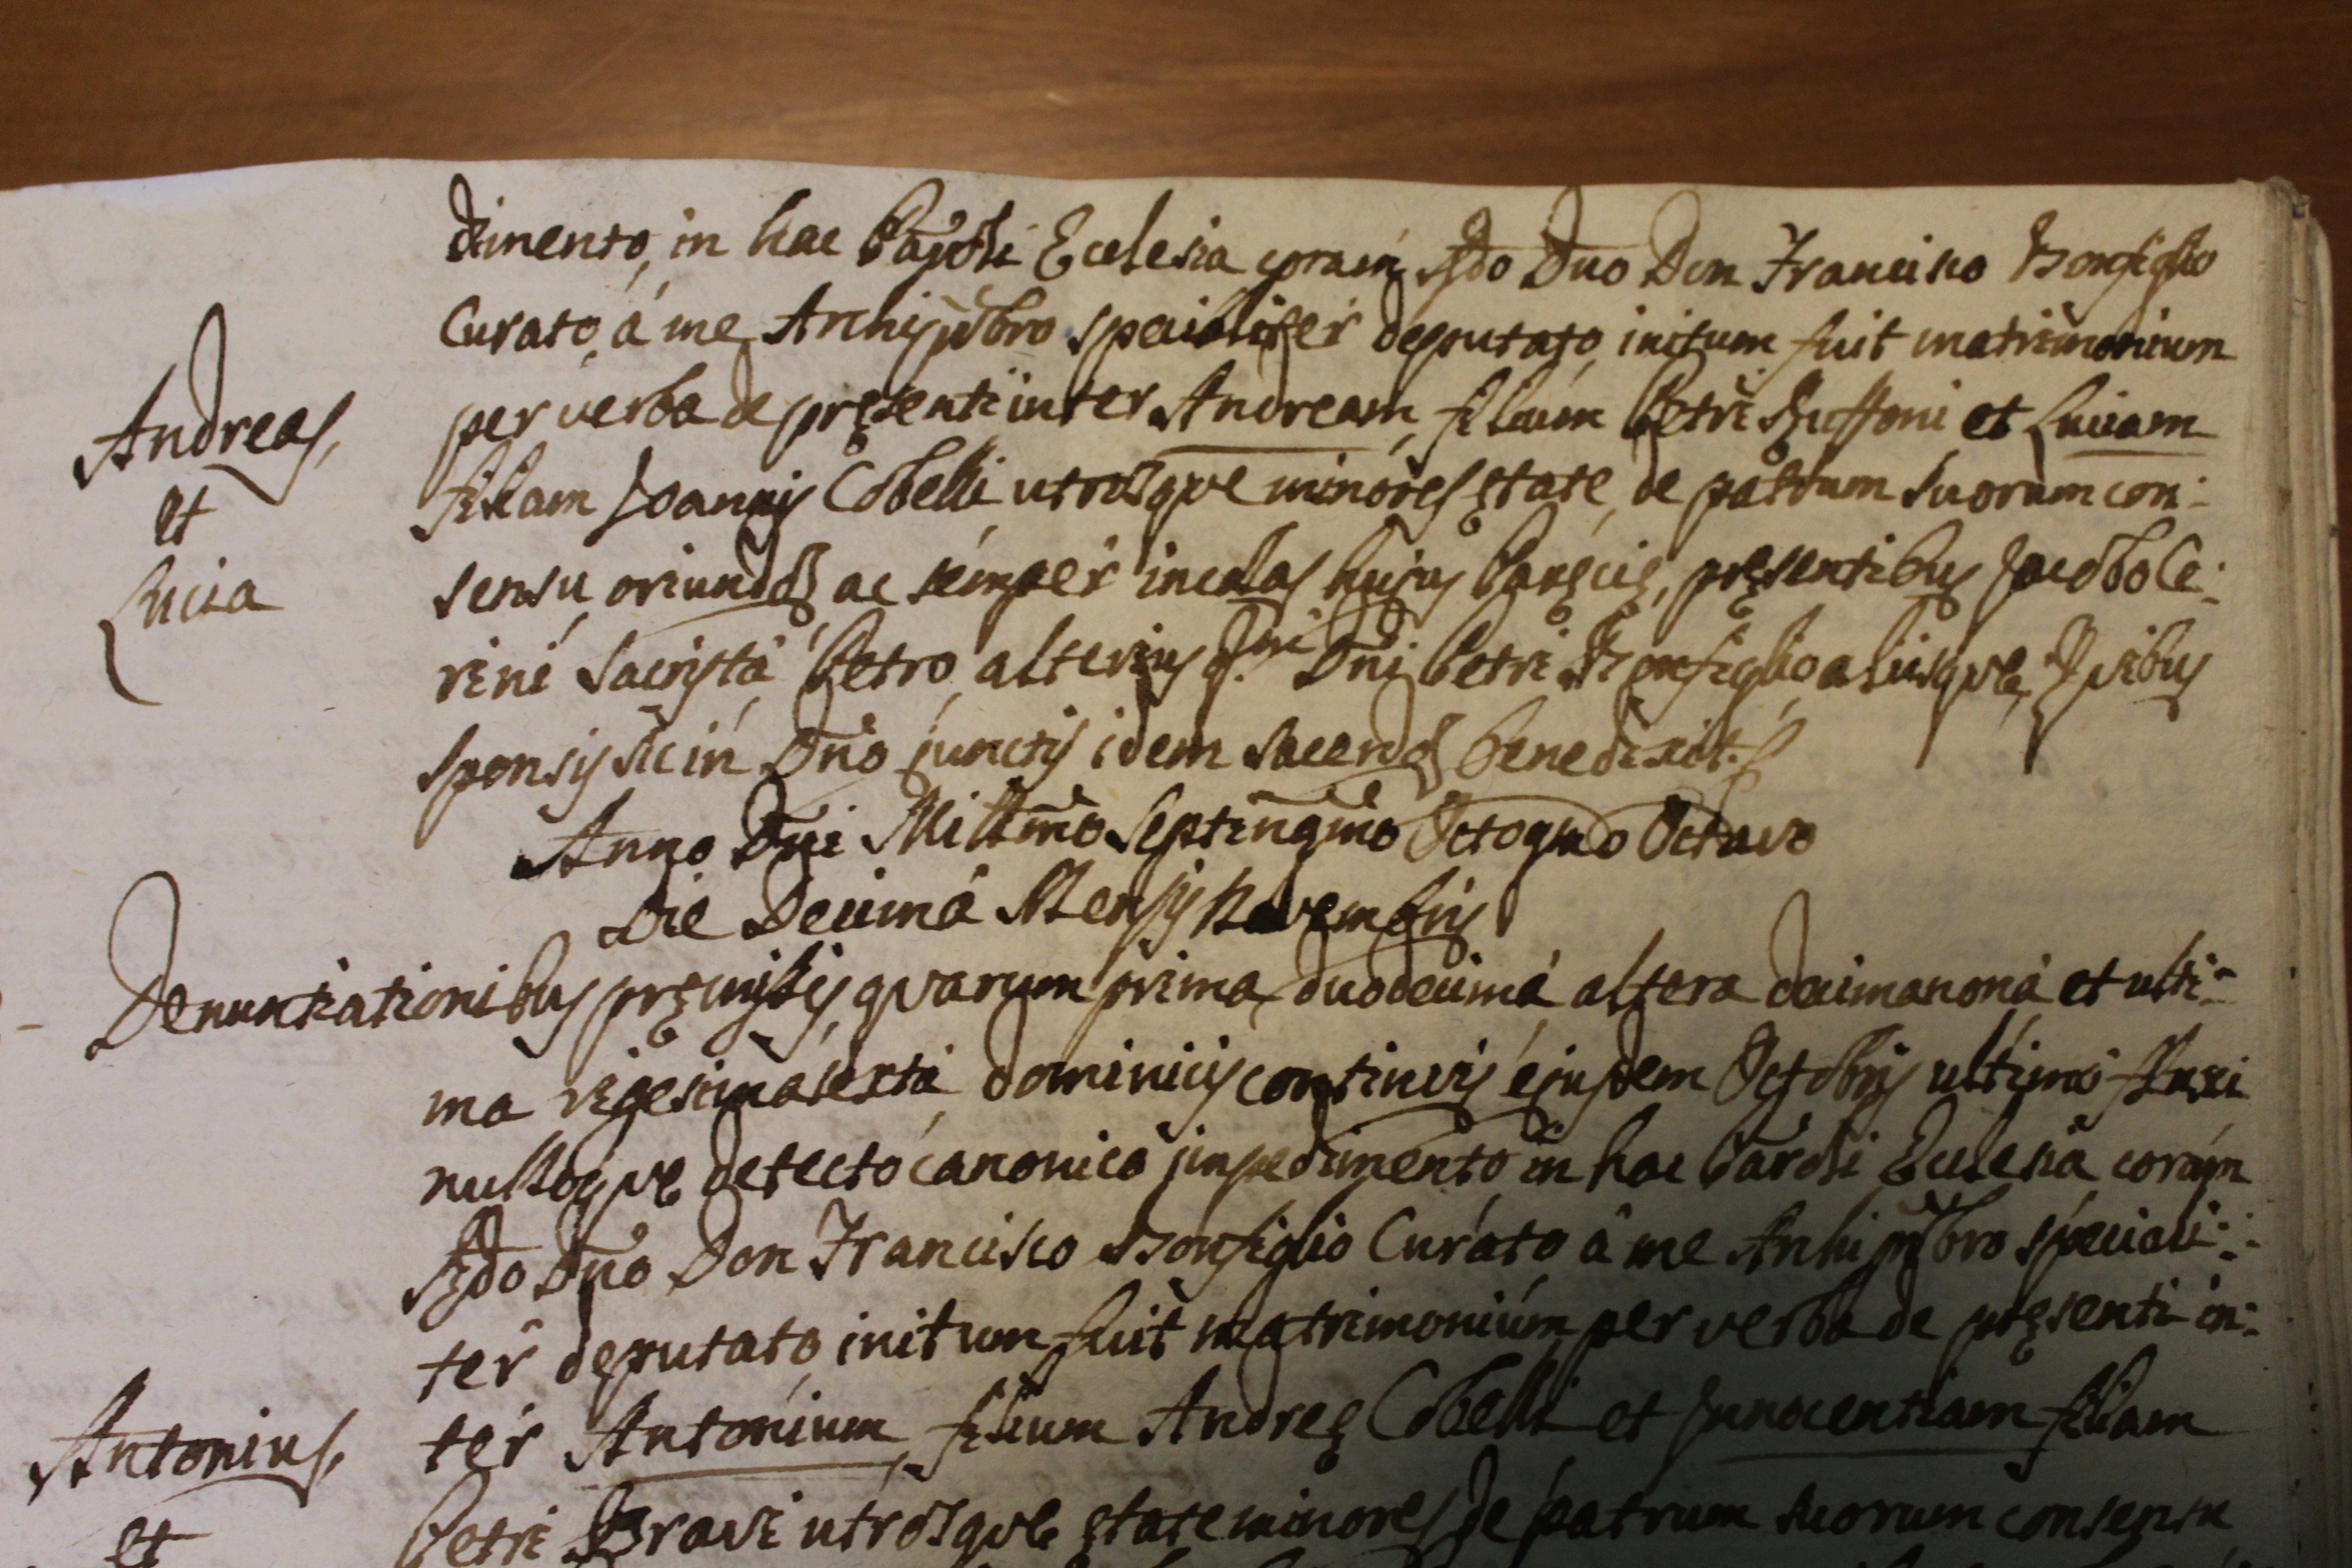 dimento, in hac Paroli Ecclesia coram Rdo Dno Don Francisco Bonfiglio
Curato, à me Archipbro specialiter deputato, initum fuit matrimonium
Andreas, per verba de pręsenti inter Andream, filium Petri Ruffoni et Luciam
et filiam Joannis Cobelli utrosque minores ętate, de patrum suorum con:
Lucia sensu, oriundos ac semper incolas hujus Paręcię, pręsentibus Jacobo Ce:
rini Sacrista, Petro alterius q. Dni Petri Bonfiglio aliisque, Quibus
sponsis sic in Dno junctis idem sacerdos benedixit.
Anno Dni Millmo Septingmo Octogmo Octavo
Die Decima Mensis Novembris
Denuntiationibus pręmissis, quarum prima duodecima altera decimanona et ulti:
ma vigesimasexta dominicis continuis ejusdem Octobris ultimo fluxi
nulloque detecto canonico impedimento in hac Paroli Ecclesia coram
Rdo Dno Don Francisco Bonfiglio Curato à me Archipbro speciali:
ter deputato, initum fuit matrimonium per verba de pręsenti in:
Antonius, ter Antonium, filium Andreę Cobelli et Innocentiam filiam
et Petri Bravi utrosque ętate minores de patrum suorum consensu